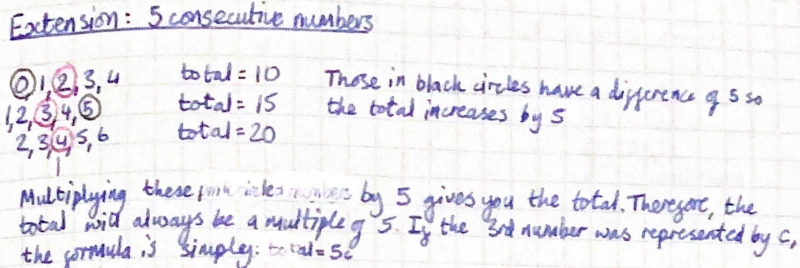 Extension: 5 consecutive numbers
0, 1, 2, 3, 4 total = 10 Those in black circles have a difference of 5 so
1, 2, 3, 4, 5 total = 15 the total increases by 5
2, 3, 4, 5, 6 total = 20
Multiplying these pink circles numbers by 5 gives you the total. Therefore, the
total will always be a multiple of 5. If the 3rd number was represented by c,
the formula is simpley: total = 5c